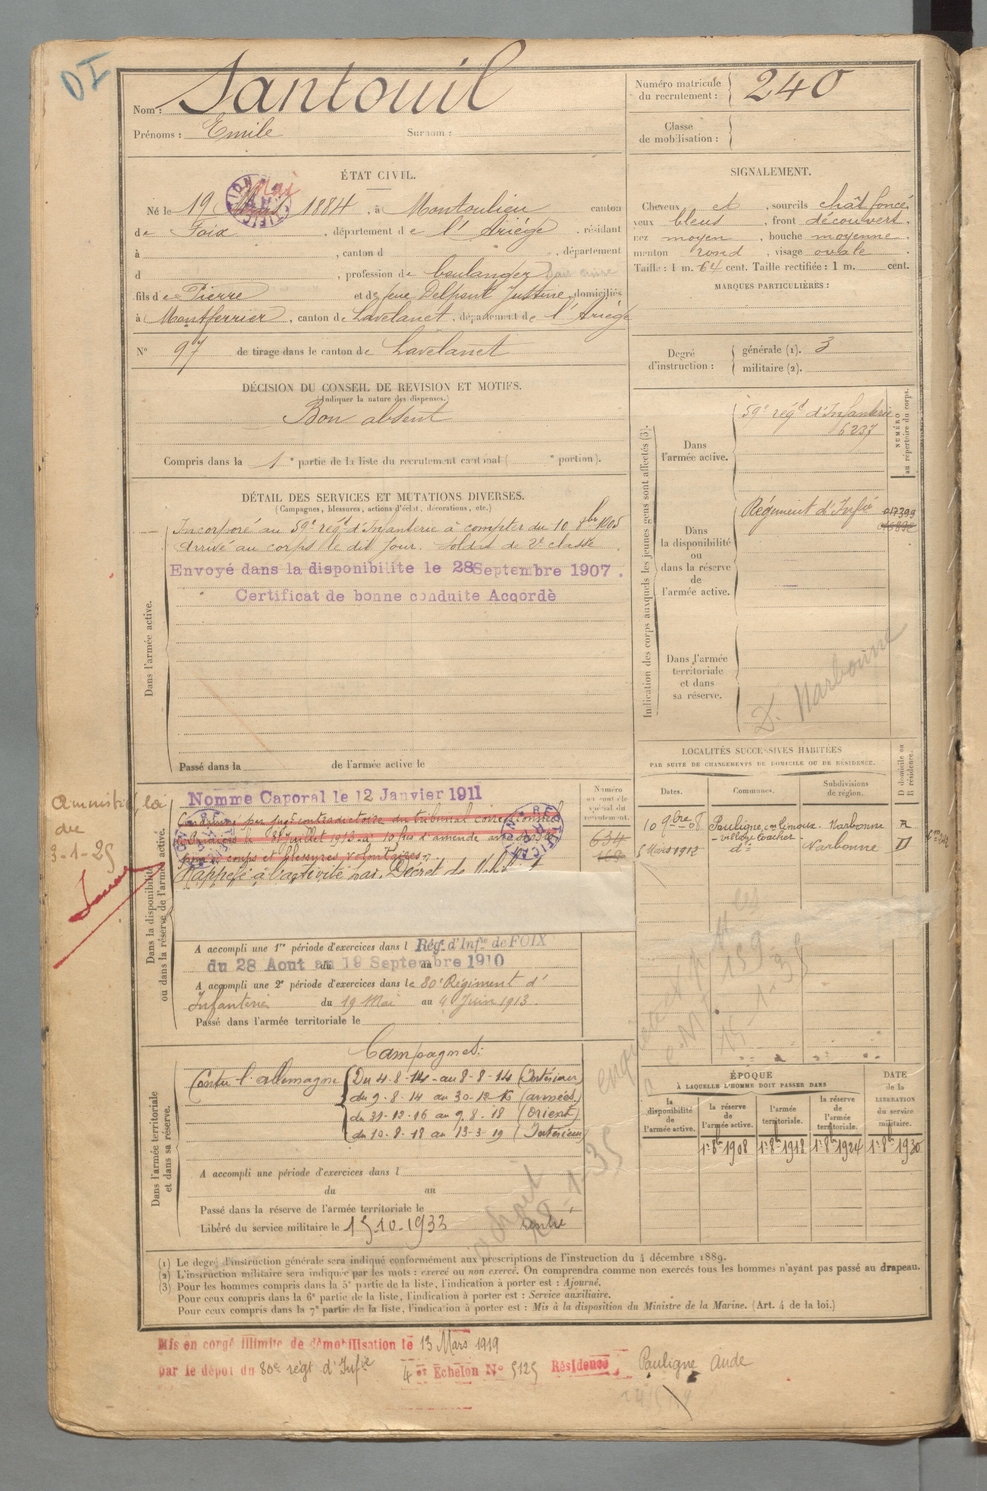 DI
Nom : Santouil
Prénoms : Emile Surnom :
Numéro matricule du recrutement : 240
Classe de mobilisation :
ÉTAT CIVIL.
Né le 19 Mai 1884, à Montoulieu canton
de Foix, département de l'Ariège, résidant
à , canton d , département
d , profession de boulanger
fils de Pierre et de feue Delpont Justine, domiciliés
à Montferrier, canton de Lavelanet, département de l'Ariège
N° 97 de tirage dans le canton de Lavelanet
SIGNALEMENT.
Cheveux et , sourcils chât foncé
yeux bleus , front découvert
nez moyen , bouche moyenne
menton rond , visage ovale
Taille : 1 m. 64 cent. Taille rectifiée : 1 m. cent.
MARQUES PARTICULIÈRES :
Degré d'instruction : générale (1). 3
militaire (2).
DÉCISION DU CONSEIL DE REVISION ET MOTIFS.
(Indiquer la nature des dispenses.)
Bon absent
Compris dans la 1e partie de la liste du recrutement cantonal ( e portion).
Indication des corps auxquels les jeunes gens sont affectés (3).
NUMÉRO au répertoire du corps.
Dans l'armée active.
59e régt d'Infanterie
6237
Dans la disponibilité ou dans la réserve de l'armée active.
Régiment d'Infie 017399
Dans l'armée territoriale et dans sa réserve.
D. Narbonne
DÉTAIL DES SERVICES ET MUTATIONS DIVERSES.
(Campagnes, blessures, actions d'éclat, décorations, etc.)
Dans l'armée active.
Incorporé au 59e régt d'Infanterie à compter du 10 8bre 1905
Arrivé au corps le dit jour. soldat de 2e classe
Envoyé dans la disponibilite le 28 Septembre 1907.
Certificat de bonne conduite Accordè
Passé dans la de l'armée active le
Amnistié la
3-1-25
Dans la disponibilité ou dans la réserve de l'armée active.
Numéro au contrôle spécial du recrutement.
634
Nomme Caporal le 12 Janvier 1911
Condamné par jugt contradictoire du tribunal correctionnel
de Limoux le 8 Juillet 1910 à 10 frs d'amende
coups et blessures volontaires.
Rappelé à l'activité par Décret de
A accompli une 1re période d'exercices dans l Régt d'Infie de FOIX
du 28 Aout au 19 Septembre 1910
A accompli une 2e période d'exercices dans le 80e Régiment d'
Infanterie du 19 Mai au 4 Juin 1913.
Passé dans l'armée territoriale le
LOCALITÉS SUCCESSIVES HABITÉES
PAR SUITE DE CHANGEMENTS DE DOMICILE OU DE RÉSIDENCE.
Dates. Communes. Subdivisions de région. D domicile ou R résidence.
10 9bre 08 Pauligne, con Limoux. Narbonne R
5 Mars 1912 dt Narbonne D
Dans l'armée territoriale et dans sa réserve.
Campagnes:
Contre l'allemagne
Du 4-8-14 au 8-8-14 (Intérieur)
du 9-8-14 au 30-12-16 (armées)
du 31-12-16 au 9.8.18 (Orient)
du 10-8-18 au 13-3-19 (Intérieur)
A accompli une période d'exercices dans l
du au
Passé dans la réserve de l'armée territoriale le
Libéré du service militaire le 15 10-1933
ÉPOQUE
À LAQUELLE L'HOMME DOIT PASSER DANS
DATE de la LIBÉRATION du service militaire.
la disponibilité de l'armée active. la réserve de l'armée active. l'armée territoriale. la réserve de l'armée territoriale.
1er 8bre 1908 1er 8bre 1918 1er 8bre 1924 1er 8bre 1930
(1) Le degré d'instruction générale sera indiqué conformément aux prescriptions de l'instruction du 4 décembre 1889.
(2) L'instruction militaire sera indiquée par les mots : exercé ou non exercé. On comprendra comme non exercés tous les hommes n'ayant pas passé au drapeau.
(3) Pour les hommes compris dans la 5e partie de la liste, l'indication à porter est : Ajourné.
Pour ceux compris dans la 6e partie de la liste, l'indication à porter est : Service auxiliaire.
Pour ceux compris dans la 7e partie de la liste, l'indication à porter est : Mis à la disposition du Ministre de la Marine. (Art. 4 de la loi.)
Mis en congé illimité de démobilisation le 13 Mars 1919
par le dépot du 80e régt d'Infie 4e Echelon N° 5125 Résidence Pauligne Aude